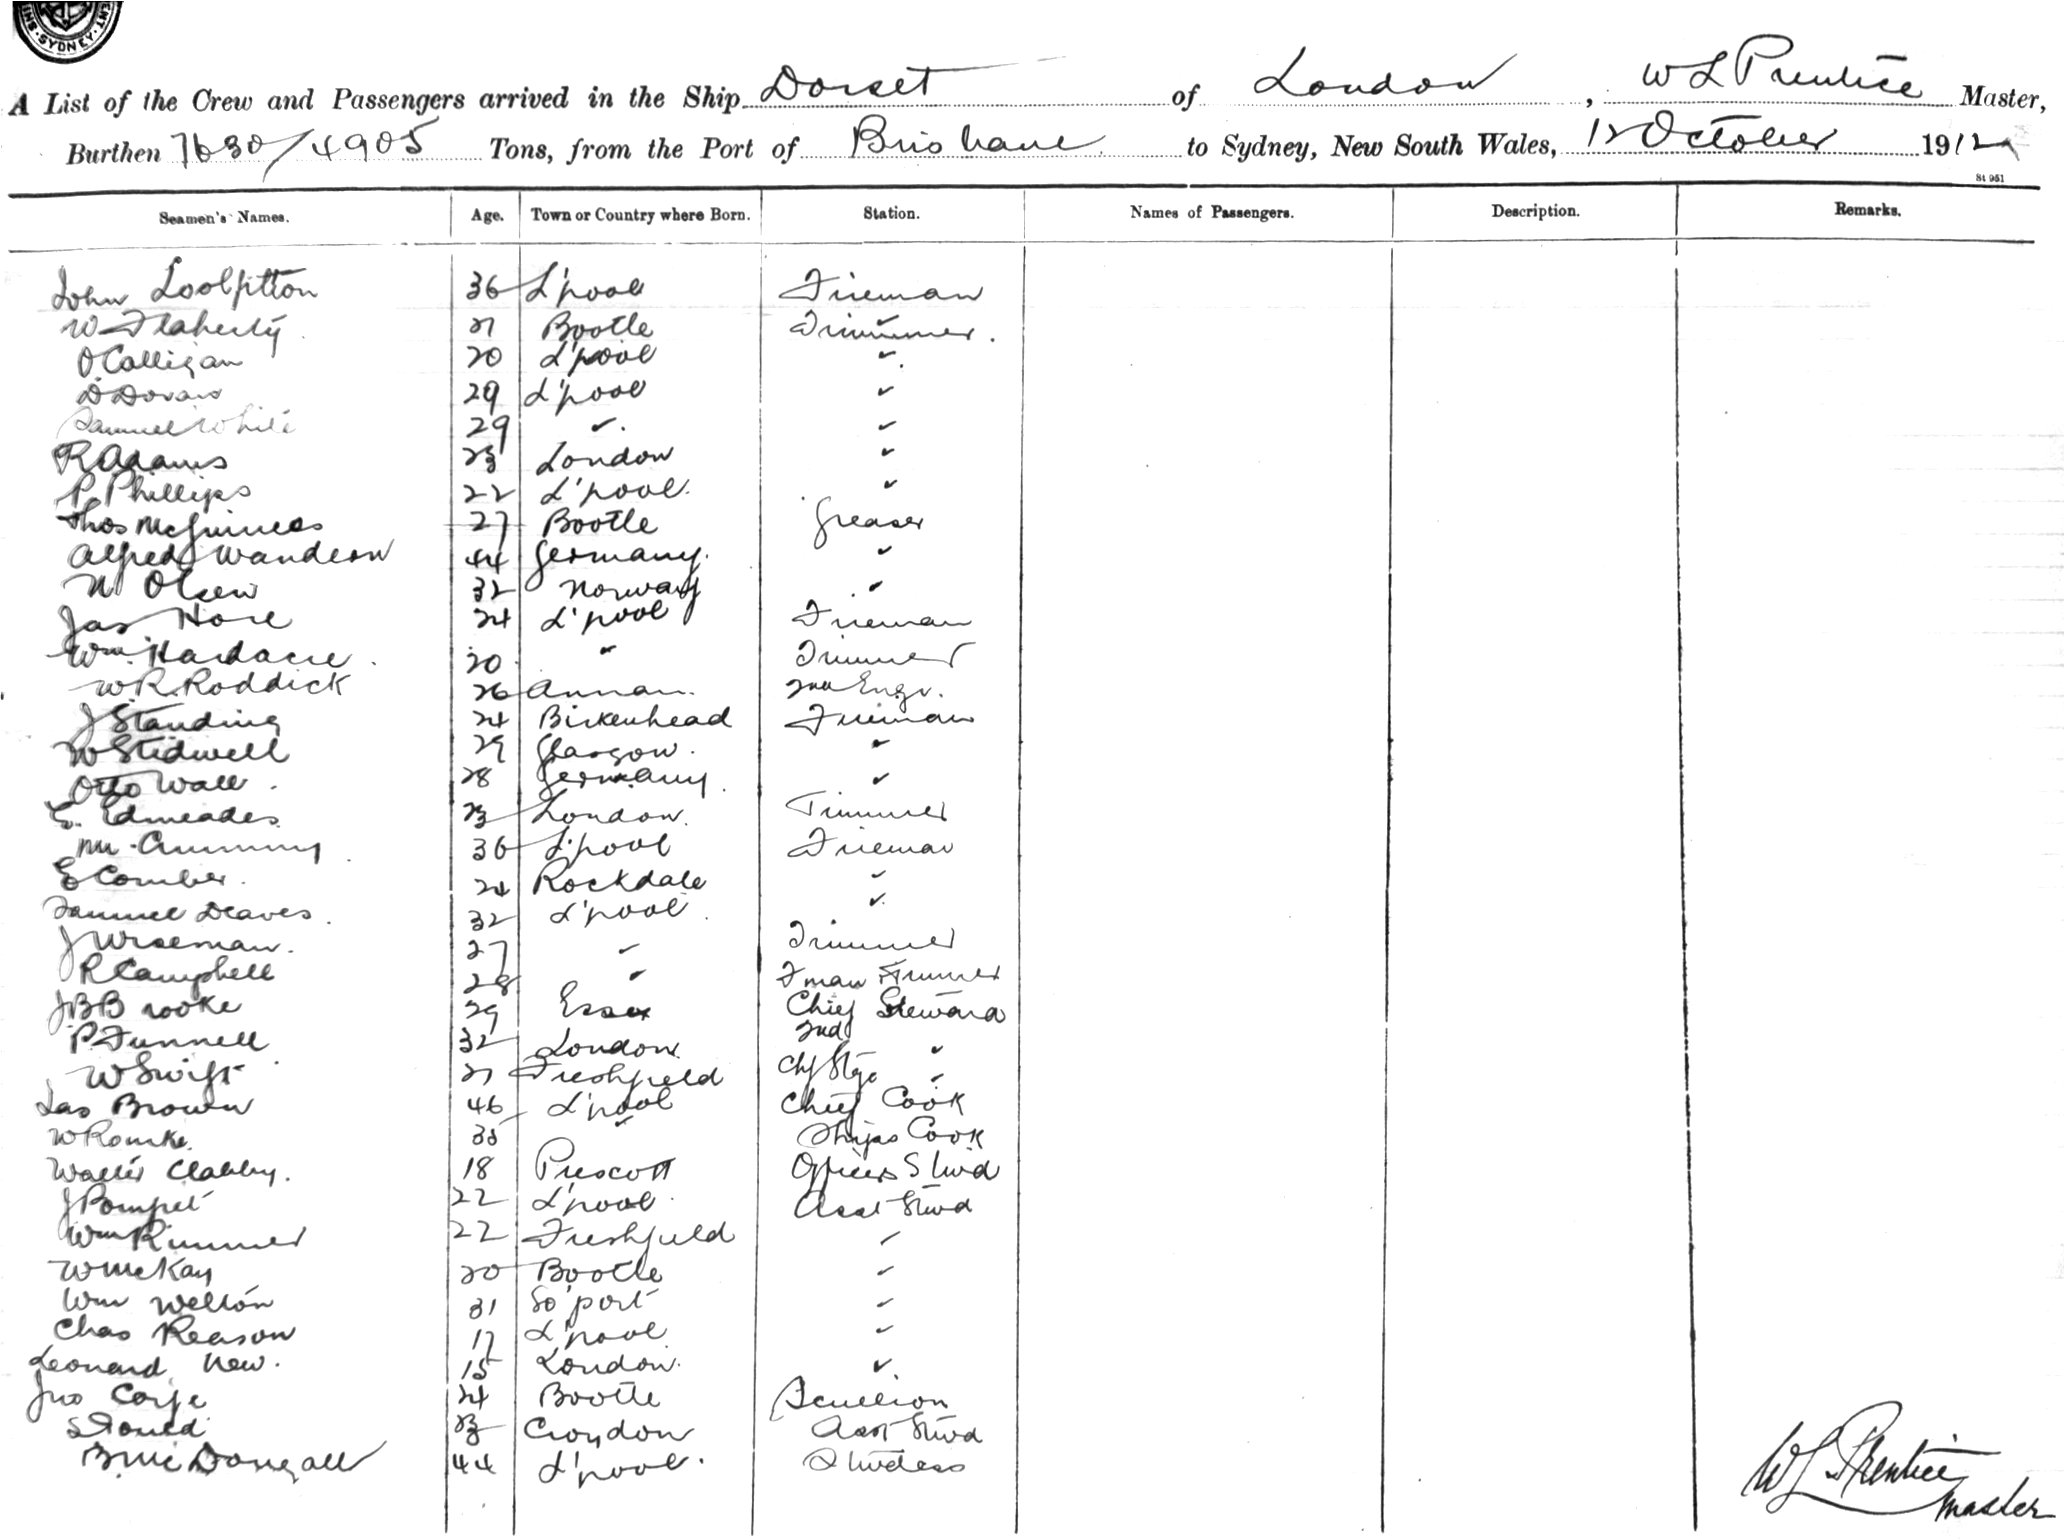 SYDNEY
A List of the Crew and Passengers arrived in the Ship Dorset of London, W L Prentice Master,
Burthen 7630/4905 Tons, from the Port of Brisbane to Sydney, New South Wales, 12 October 1912
St 951
Seamen's Names. Age. Town or Country where Born. Station. Names of Passengers. Description. Remarks.
John 36 L'pool Fireman
W Flaherty 21 Bootle Trimmer.
O Calligan 20 L'pool "
D Doran 29 L'pool "
Samuel White 29 " "
R Adams 23 London "
P. Phillips 22 L'pool. "
Thos McGuiness 27 Bootle Greaser
Alfred Wandern 44 Germany. "
N Olsen 32 Norway "
Jas Hore 24 L'pool Fireman
Wm. Hardacre. 20 " Trimmer
W. R. Roddick 26 Annan. 2nd Engr.
J Standing 24 Birkenhead Fireman
W Stidwell 29 Glasgow. "
Otto Wall. 28 Germany "
E. Edmeades 23 London. Trimmer
36 L'pool Fireman
E Comber. 24 Rockdale "
Samuel Deaves. 32 L'pool. "
J Wiseman. 27 " Trimmer
R Campbell 28 " F'man Trimmer
J B Brooke 29 Essex Chief Steward
P Funnell 32 London. 2nd "
W Swift 21 Freshfield "
Jas Brown 46 L'pool Chief Cook
W Rourke. 35 " Ships Cook
Walter Clabby. 18 Prescott Officers Stwd
J Pompet 22 L'pool. Asst Stwd
Wm Rimmer 22 Freshfield "
W McKay 20 Bootle "
Wm Welton 31 So'port "
Chas Reason 17 L'pool "
Leonard New. 15 London. "
Jno 24 Bootle Scullion
23 Croydon Asst Stwd
B McDougall 44 L'pool. Stwdess
W L Prentice
Master